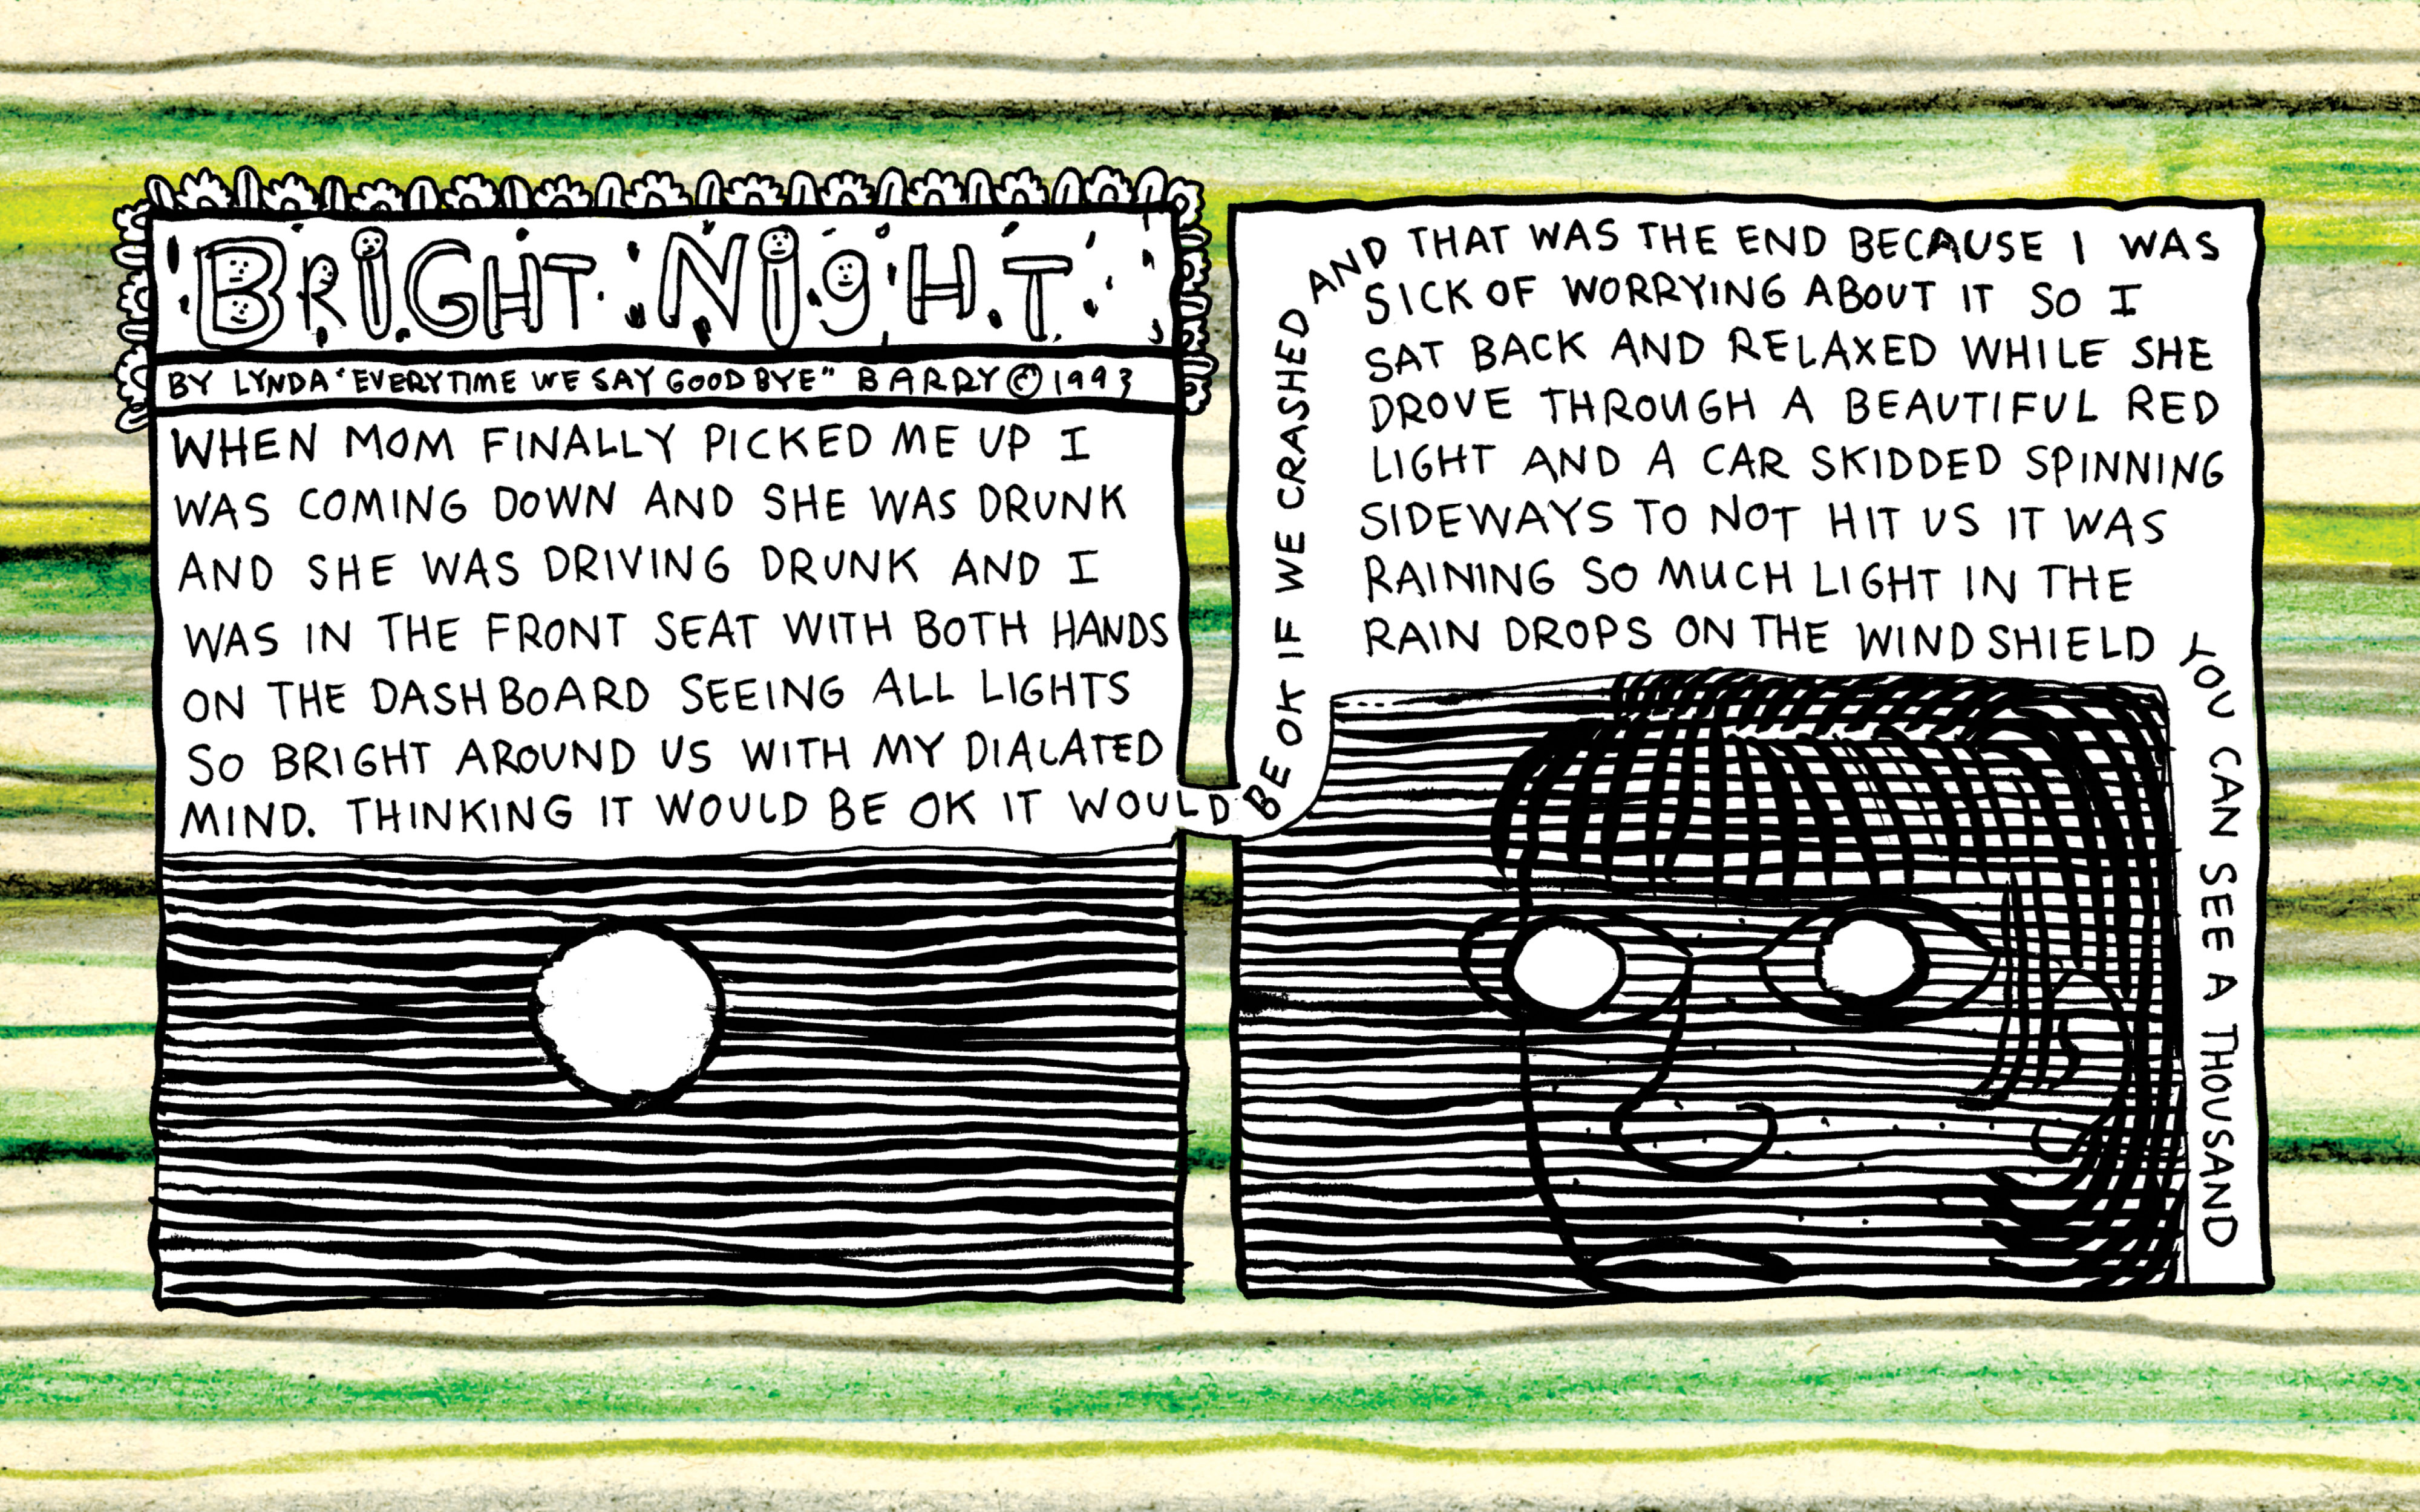 BRIGHT NIGHT
BY LYNDA "EVERYTIME WE SAY GOODBYE" BARRY © 1993
WHEN MOM FINALLY PICKED ME UP I
WAS COMING DOWN AND SHE WAS DRUNK
AND SHE WAS DRIVING DRUNK AND I
WAS IN THE FRONT SEAT WITH BOTH HANDS
ON THE DASHBOARD SEEING ALL LIGHTS
SO BRIGHT AROUND US WITH MY DIALATED
MIND. THINKING IT WOULD BE OK IT WOULD
BE OK IF WE CRASHED
AND THAT WAS THE END BECAUSE I WAS
SICK OF WORRYING ABOUT IT SO I
SAT BACK AND RELAXED WHILE SHE
DROVE THROUGH A BEAUTIFUL RED
LIGHT AND A CAR SKIDDED SPINNING
SIDEWAYS TO NOT HIT US IT WAS
RAINING SO MUCH LIGHT IN THE
RAIN DROPS ON THE WINDSHIELD
YOU CAN SEE A THOUSAND